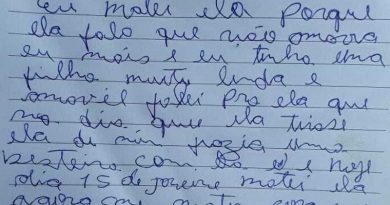 eu matei ela porque
ela falo que não amava
eu mais e eu tinha uma
filha muito linda e
amovél falei pra ela que
no dia que ela tirase
ela de min fazia uma
besteira com e hoje
dia 15 de janeiro matei ela